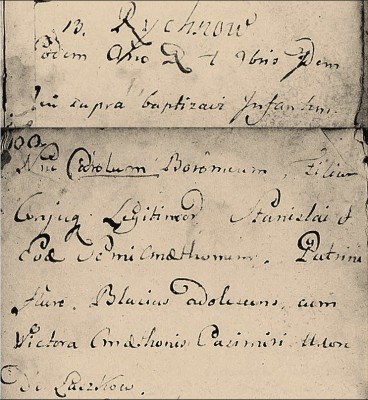 13. Rychnow
Eodem Anno R 4 Xbris Idem
qui supra baptizavi Infantem
Nne Carolum Boromeum, Filium
Conjug Legitimor Stanislai &
Evæ Semicmethonum. Patrini
fuere. Blasius adolescens, cum
Victora Cmethonis Casimiri Uxore
De Laczkow.